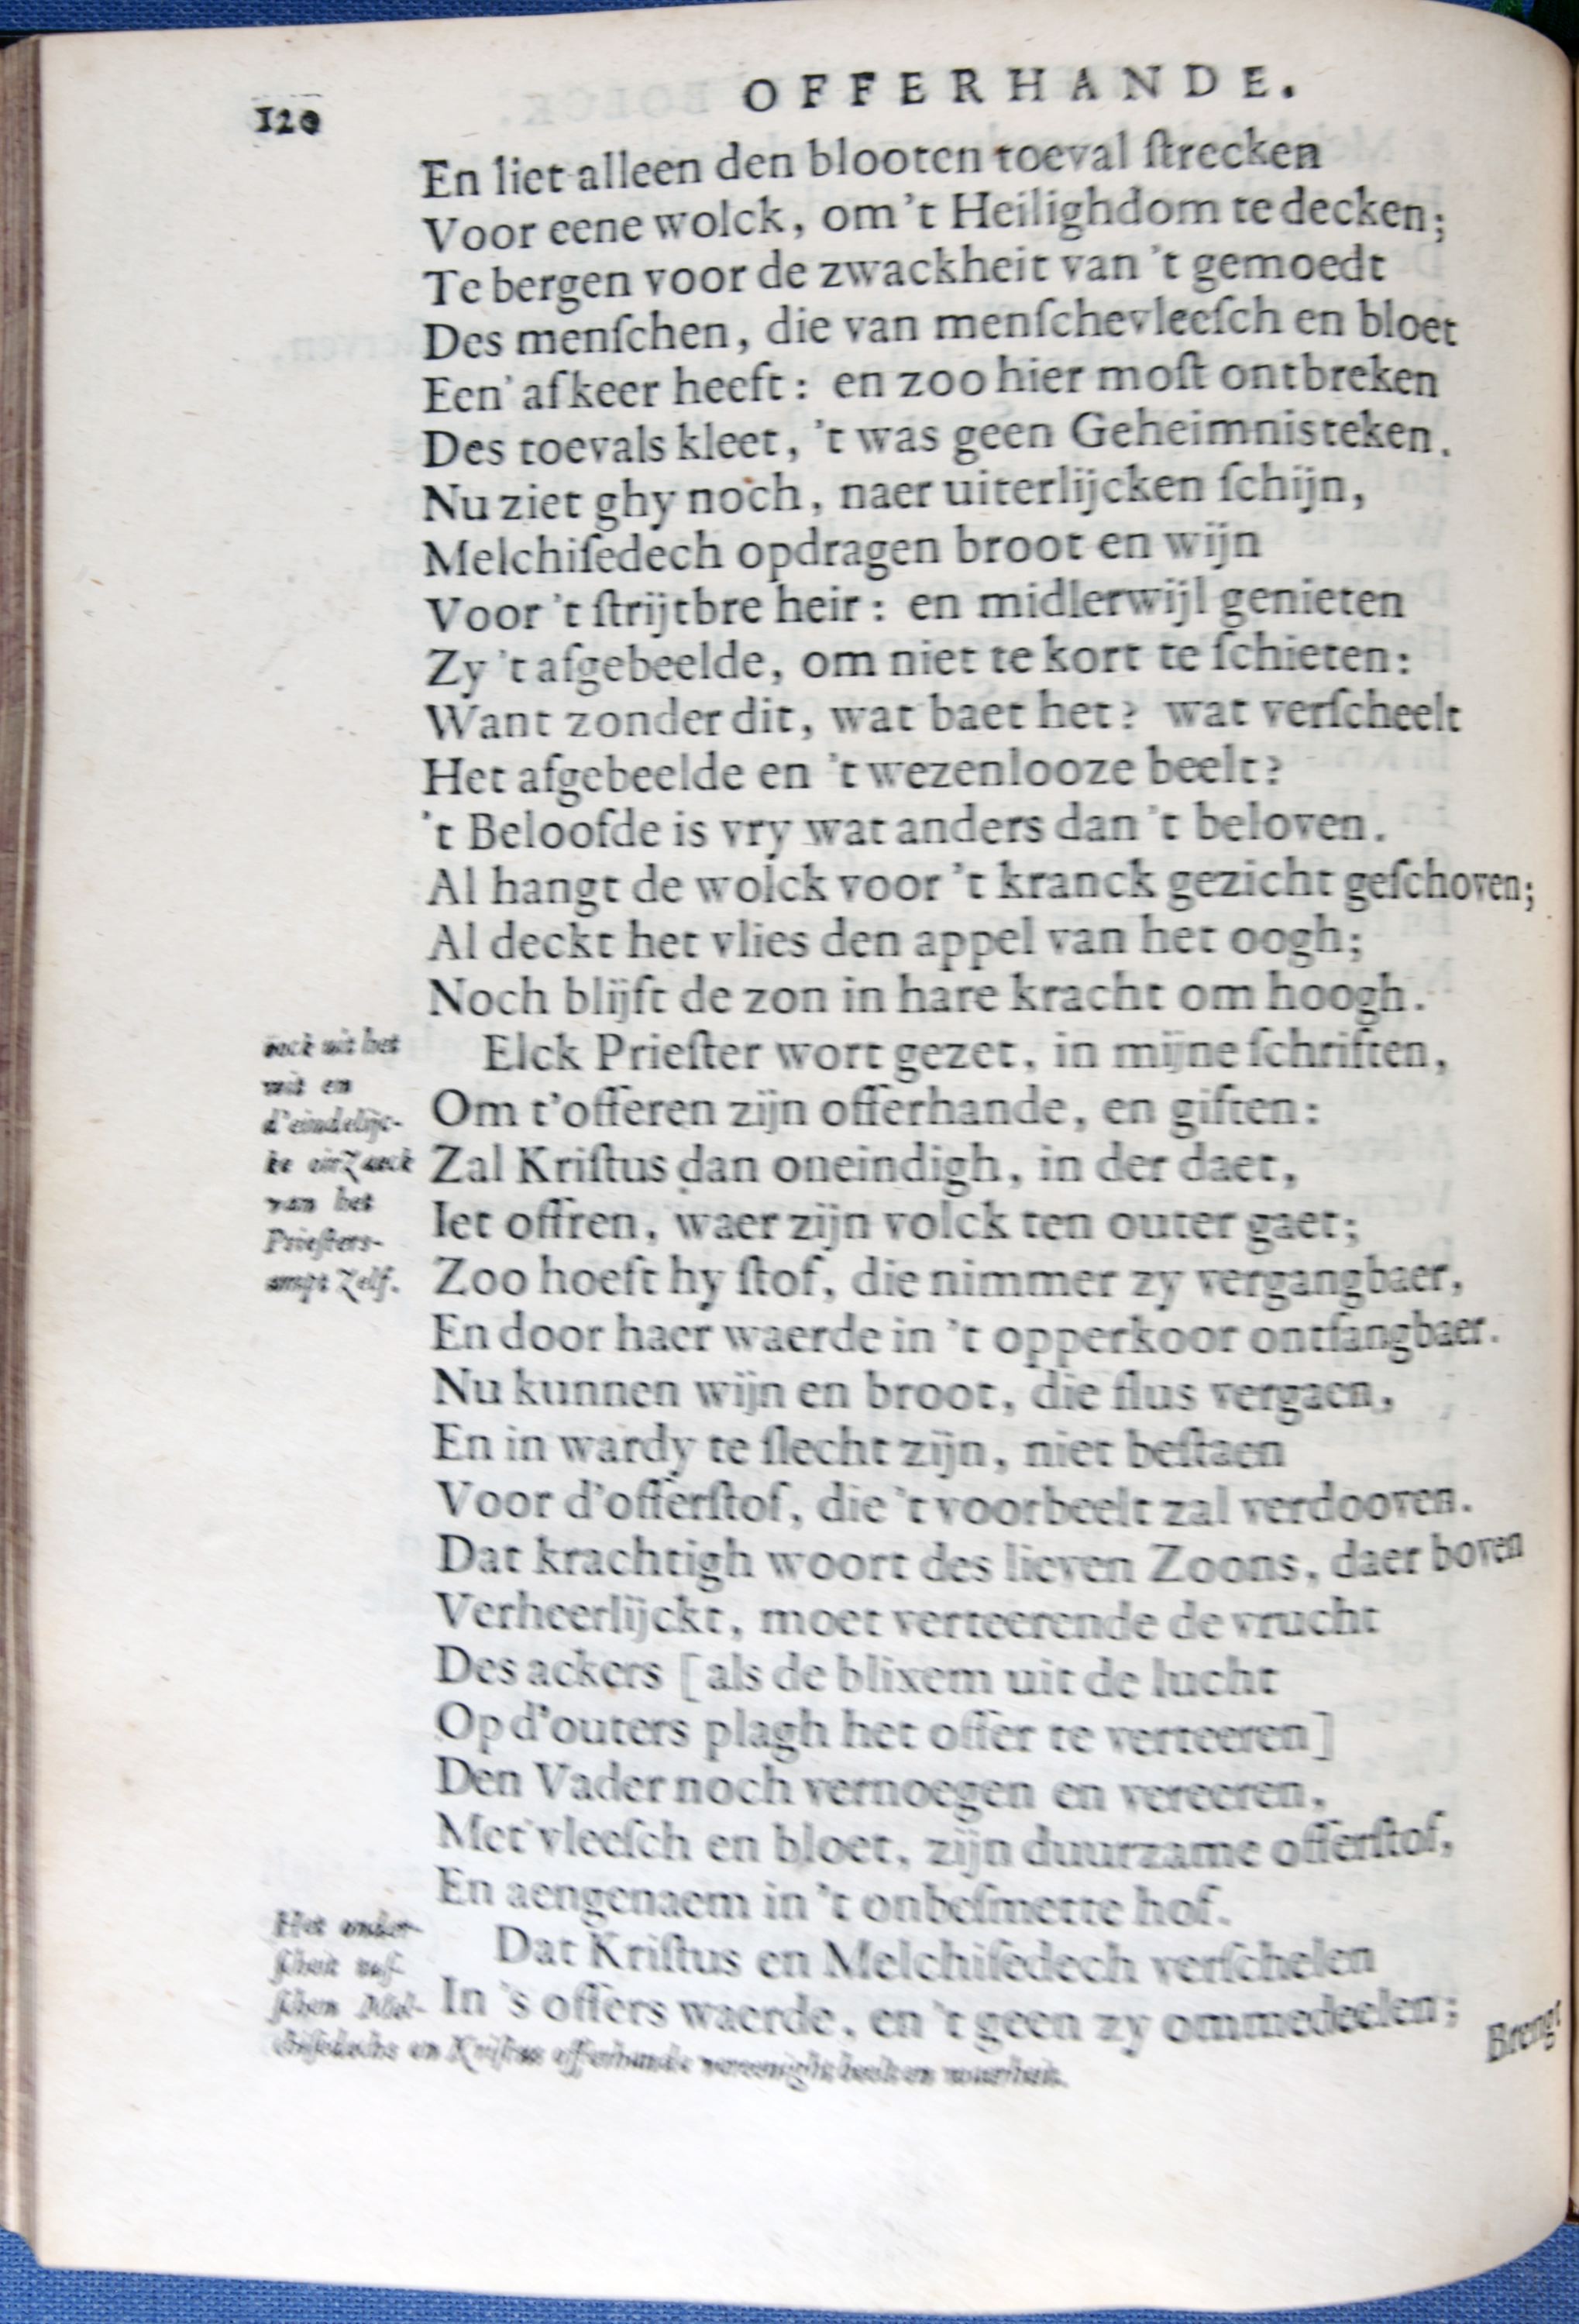 120
OFFERHANDE.
En liet alleen den blooten toeval ſtrecken
Voor eene wolck, om 't Heilighdom te decken;
Te bergen voor de zwackheit van 't gemoedt
Des menſchen, die van menſchevleeſch en bloet
Een' afkeer heeft: en zoo hier moſt ontbreken
Des toevals kleet, 't was geen Geheimnisteken.
Nu ziet ghy noch, naer uiterlijcken ſchijn,
Melchiſedech opdragen broot en wijn
Voor 't ſtrijtbre heir: en midlerwijl genieten
Zy 't afgebeelde, om niet te kort te ſchieten:
Want zonder dit, wat baet het? wat verſcheelt
Het afgebeelde en 't wezenlooze beelt?
't Beloofde is vry wat anders dan 't beloven.
Al hangt de wolck voor 't kranck gezicht geſchoven;
Al deckt het vlies den appel van het oogh;
Noch blijft de zon in hare kracht om hoogh.
oock uit het
wit en
d'eindelijc-
ke oirzaeck
van het
Prieſters-
ampt zelf.
Elck Prieſter wort gezet, in mijne ſchriften,
Om t'offeren zijn offerhande, en giften:
Zal Kriſtus dan oneindigh, in der daet,
Iet offren, waer zijn volck ten outer gaet;
Zoo hoeft hy ſtof, die nimmer zy vergangbaer,
En door haer waerde in 't opperkoor ontfangbaer.
Nu kunnen wijn en broot, die flus vergaen,
En in wardy te ſlecht zijn, niet beſtaen
Voor d'offerſtof, die 't voorbeelt zal verdooven.
Dat krachtigh woort des lieven Zoons, daer boven
Verheerlijckt, moet verteerende de vrucht
Des ackers [als de blixem uit de lucht
Op d'outers plagh het offer te verteeren]
Den Vader noch vernoegen en vereeren,
Met vleeſch en bloet, zijn duurzame offerſtof,
En aengenaem in 't onbeſmette hof.
Het onder-
ſcheit tuſ-
ſchen Mel-
chiſedechs en Kriſtus offerhande vereenight beelt en waerheit.
Dat Kriſtus en Melchiſedech verſchelen
In 's offers waerde, en 't geen zy ommedeelen;
Brengt